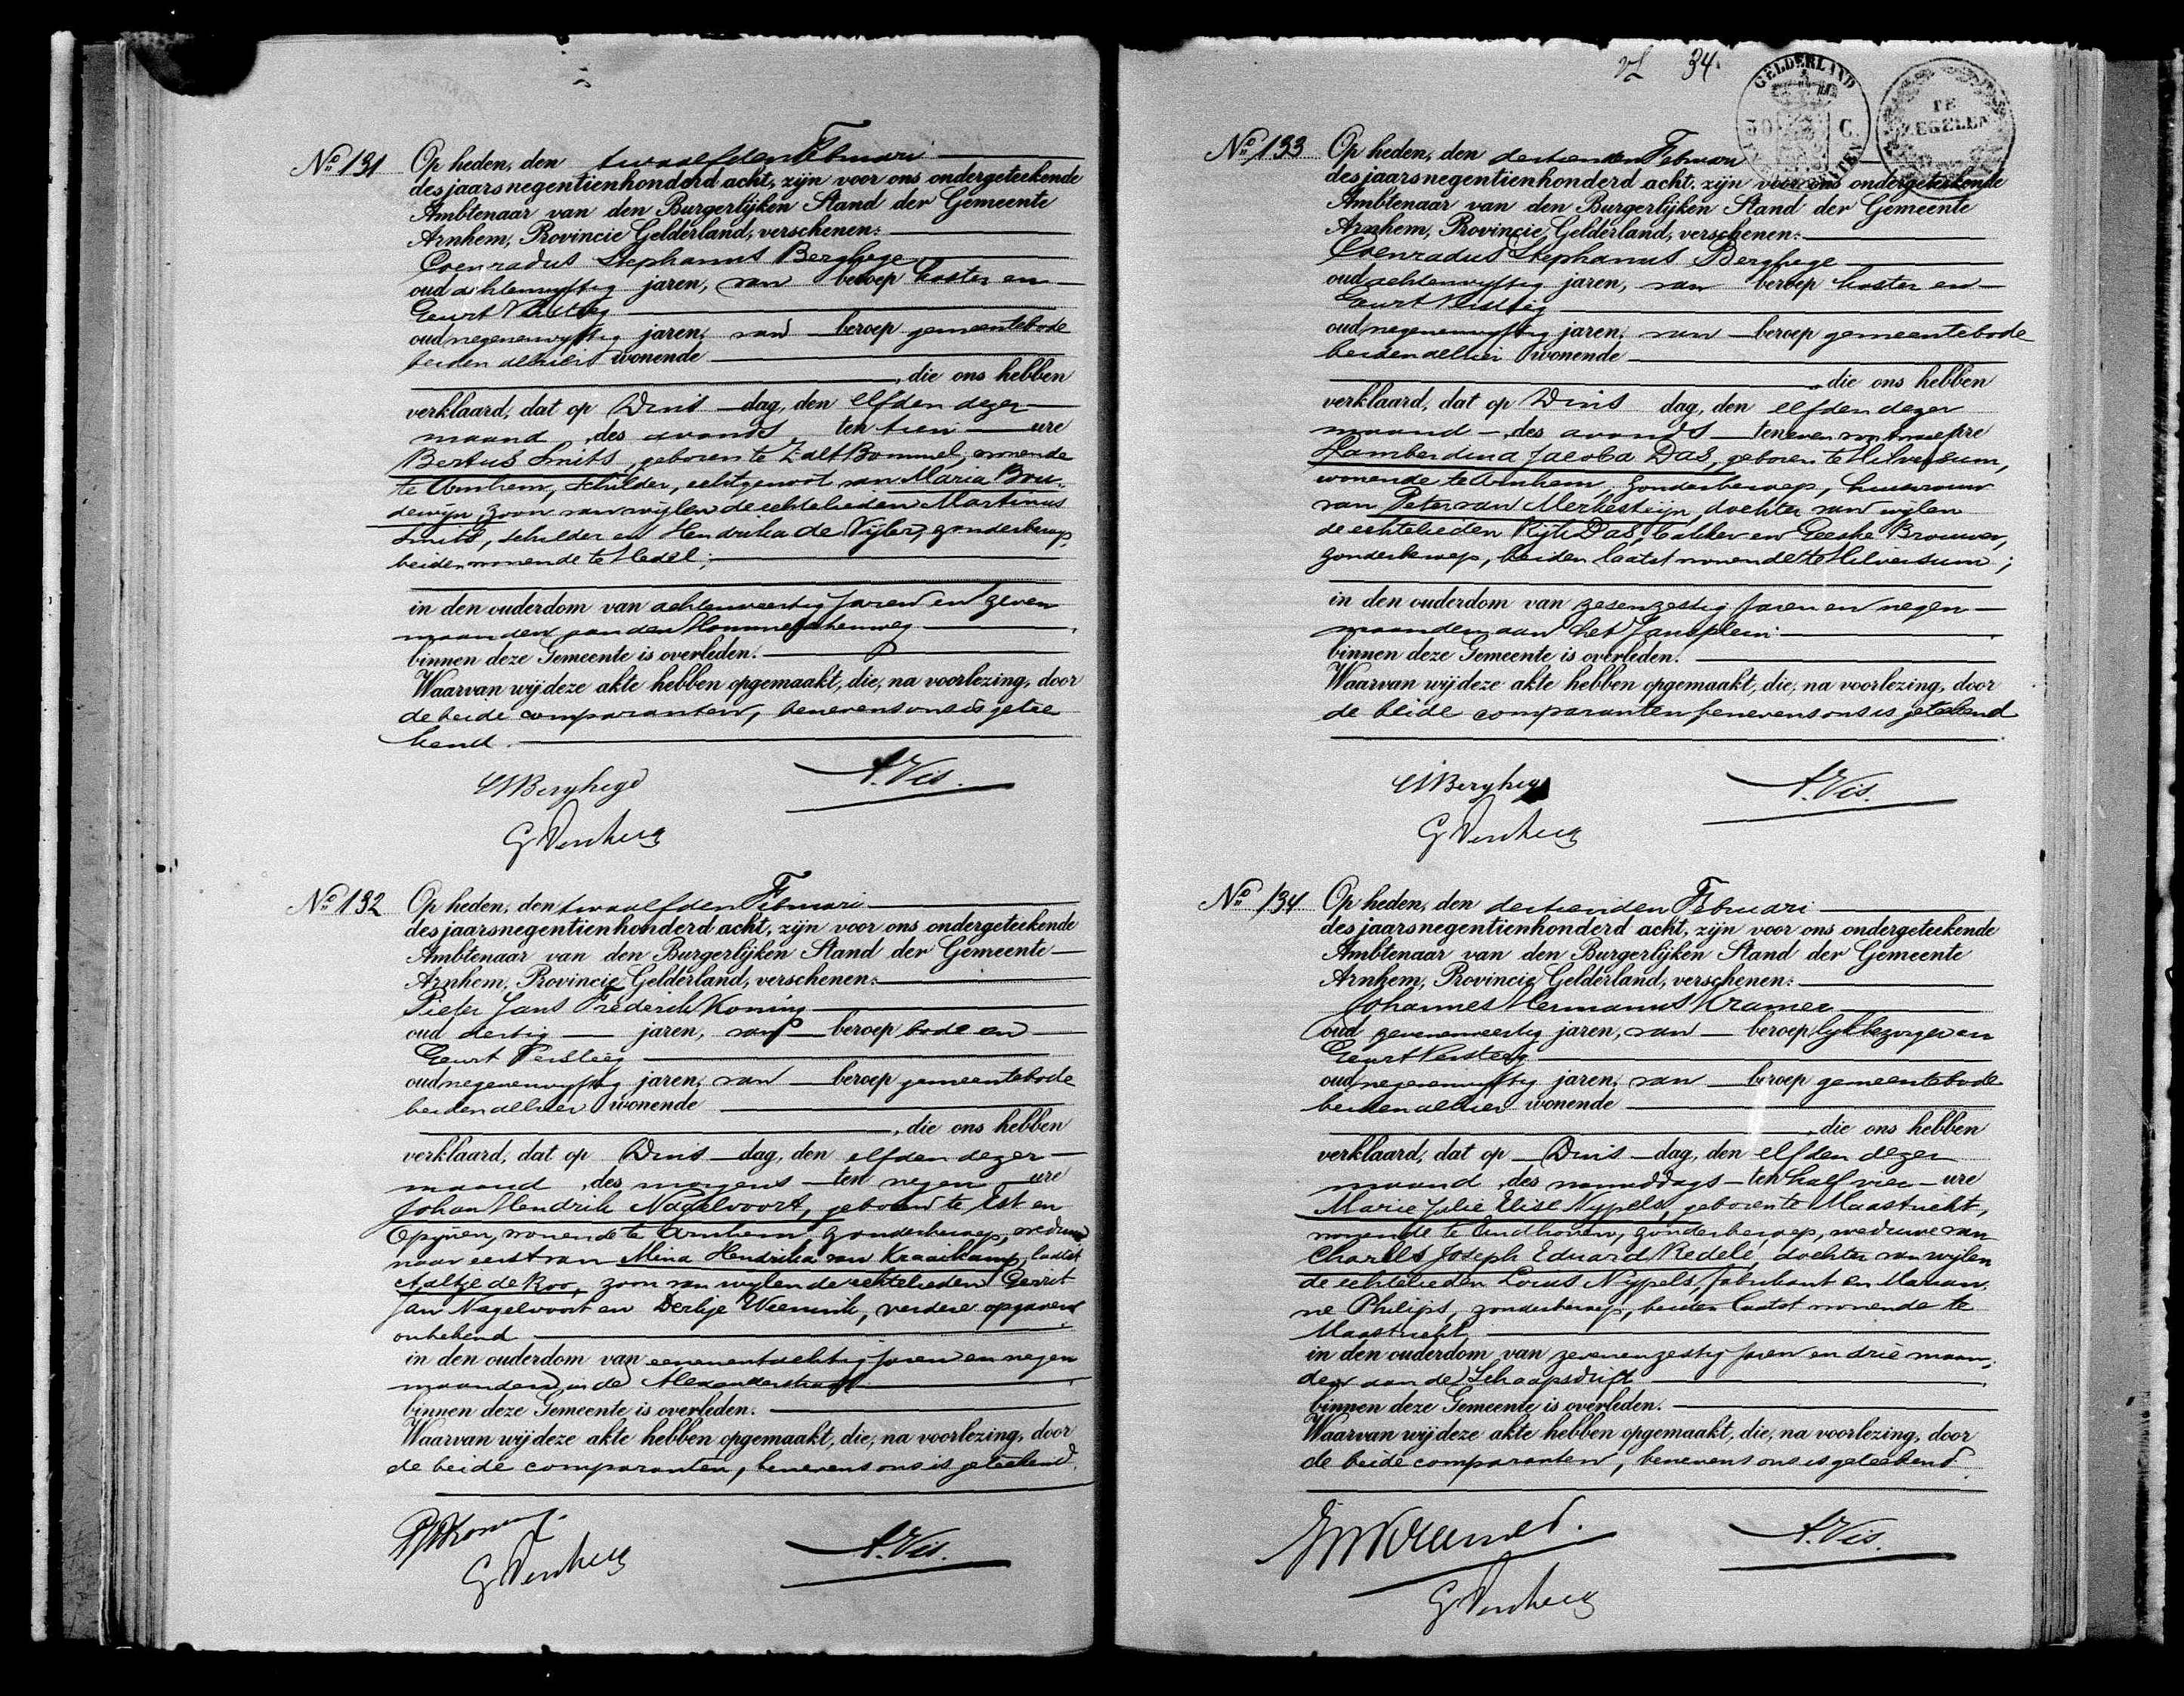 No. 131 Op heden, den twaalfden Februari
des jaars negentienhonderd acht, zijn voor ons ondergeteekende
Ambtenaar van den Burgerlijken Stand der Gemeente
Arnhem, Provincie Gelderland, verschenen:
Coenradus Stephanus Berghege
oud achtenvyftig jaren, van beroep koster en
Geurt Versteeg
oud negenenvyftig jaren, van beroep gemeentebode
beiden alhier wonende
, die ons hebben
verklaard, dat op Dins dag, den elfden dezer
maand, des avonds ten tien ure
Bertus Smits, geboren te Zalt Bommel, wonende
te Arnhem, schilder, echtgenoot van Maria Bou-
dewijn, zoon van wijlen de echtelieden Martinus
Smits, schilder en Hendrika de Vijler, zonder beroep,
beiden wonende te Hedel;
in den ouderdom van achtenveertig jaren en zeven
maanden, aan den
binnen deze Gemeente is overleden.
Waarvan wij deze akte hebben opgemaakt, die, na voorlezing, door
de beide comparanten, benevens ons is getee
kend.
CSBerghege A. Vis.
G Versteeg
No. 132 Op heden, den twaalfden Februari
des jaars negentienhonderd acht, zijn voor ons ondergeteekende
Ambtenaar van den Burgerlijken Stand der Gemeente
Arnhem, Provincie Gelderland, verschenen:
Pieter Jans Frederik Koning
oud dertig jaren, van beroep bode en
Geurt Versteeg
oud negenenvyftig jaren, van beroep gemeentebode
beiden alhier wonende
, die ons hebben
verklaard, dat op Dins dag, den elfden dezer
maand, des morgens ten negen ure
Johan Hendrik Nagelvoort, geboren te Est en
Opijnen, wonende te Arnhem zonder beroep, weduw
naar eerst van Mina Hendrika van Kraaikamp, laatst
Aaltje de Roo, zoon van wylen de echtelieden Gerrit
Jan Nagelvoort en Derkje Weenink, verdere opgaven
onbekend
in den ouderdom van eenentachtig jaren en negen
maanden, in de Alexanderstraat
binnen deze Gemeente is overleden.
Waarvan wij deze akte hebben opgemaakt, die, na voorlezing, door
de beide comparanten, benevens ons is geteekend.
PJFKoning.
G Versteeg A. Vis.
34.
GELDERLAND
50 C.
TE
ZEGELEN
No. 133 Op heden, den dertienden Februari
des jaars negentienhonderd acht, zijn voor ons ondergeteekende
Ambtenaar van den Burgerlijken Stand der Gemeente
Arnhem, Provincie Gelderland, verschenen:
Coenradus Stephanus Berghege
oud achtenvyftig jaren, van beroep koster en
Geurt Versteeg
oud negenenvyftig jaren, van beroep gemeentebode
beiden alhier wonende
, die ons hebben
verklaard, dat op Dins dag, den elfden dezer
maand, des avonds ten even voor twaalf ure
Lamberdina Jacoba Das, geboren te Hilversum,
wonende te Arnhem zonder beroep, huisvrouw
van Peter van Merkesteijn, dochter van wylen
de echtelieden Rijk Das, bakker en Geeske Brouwer,
zonder beroep, beiden laatst wonende te Hilversum;
in den ouderdom van zesenzestig jaren en negen
maanden, aan het Jansplein
binnen deze Gemeente is overleden.
Waarvan wij deze akte hebben opgemaakt, die, na voorlezing, door
de beide comparanten benevens ons is geteekend
CSBerghege A. Vis.
G Versteeg
No. 134 Op heden, den dertienden Februari
des jaars negentienhonderd acht, zijn voor ons ondergeteekende
Ambtenaar van den Burgerlijken Stand der Gemeente
Arnhem, Provincie Gelderland, verschenen:
Johannes Hermanus Kramer
oud zevenenveertig jaren, van beroep lykbezorger en
Geurt Versteeg
oud negenenvyftig jaren, van beroep gemeentebode
beiden alhier wonende
, die ons hebben
verklaard, dat op Dins dag, den elfden dezer
maand, des namiddags ten half vier ure
Marie Julie Elise Nypels, geboren te Maastricht,
wonende te Eindhoven, zonder beroep, weduwe van
Charles Joseph Eduard Redelé, dochter van wijlen
de echtelieden Louis Nypels, fabrikant en Marian-
ne Philips, zonder beroep, beiden laatst wonende te
Maastricht,
in den ouderdom van zevenenzestig jaren en drie maan-
den aan de Schaapsdrift
binnen deze Gemeente is overleden.
Waarvan wij deze akte hebben opgemaakt, die, na voorlezing, door
de beide comparanten, benevens ons is geteekend.
JHKramer. A. Vis.
G Versteeg